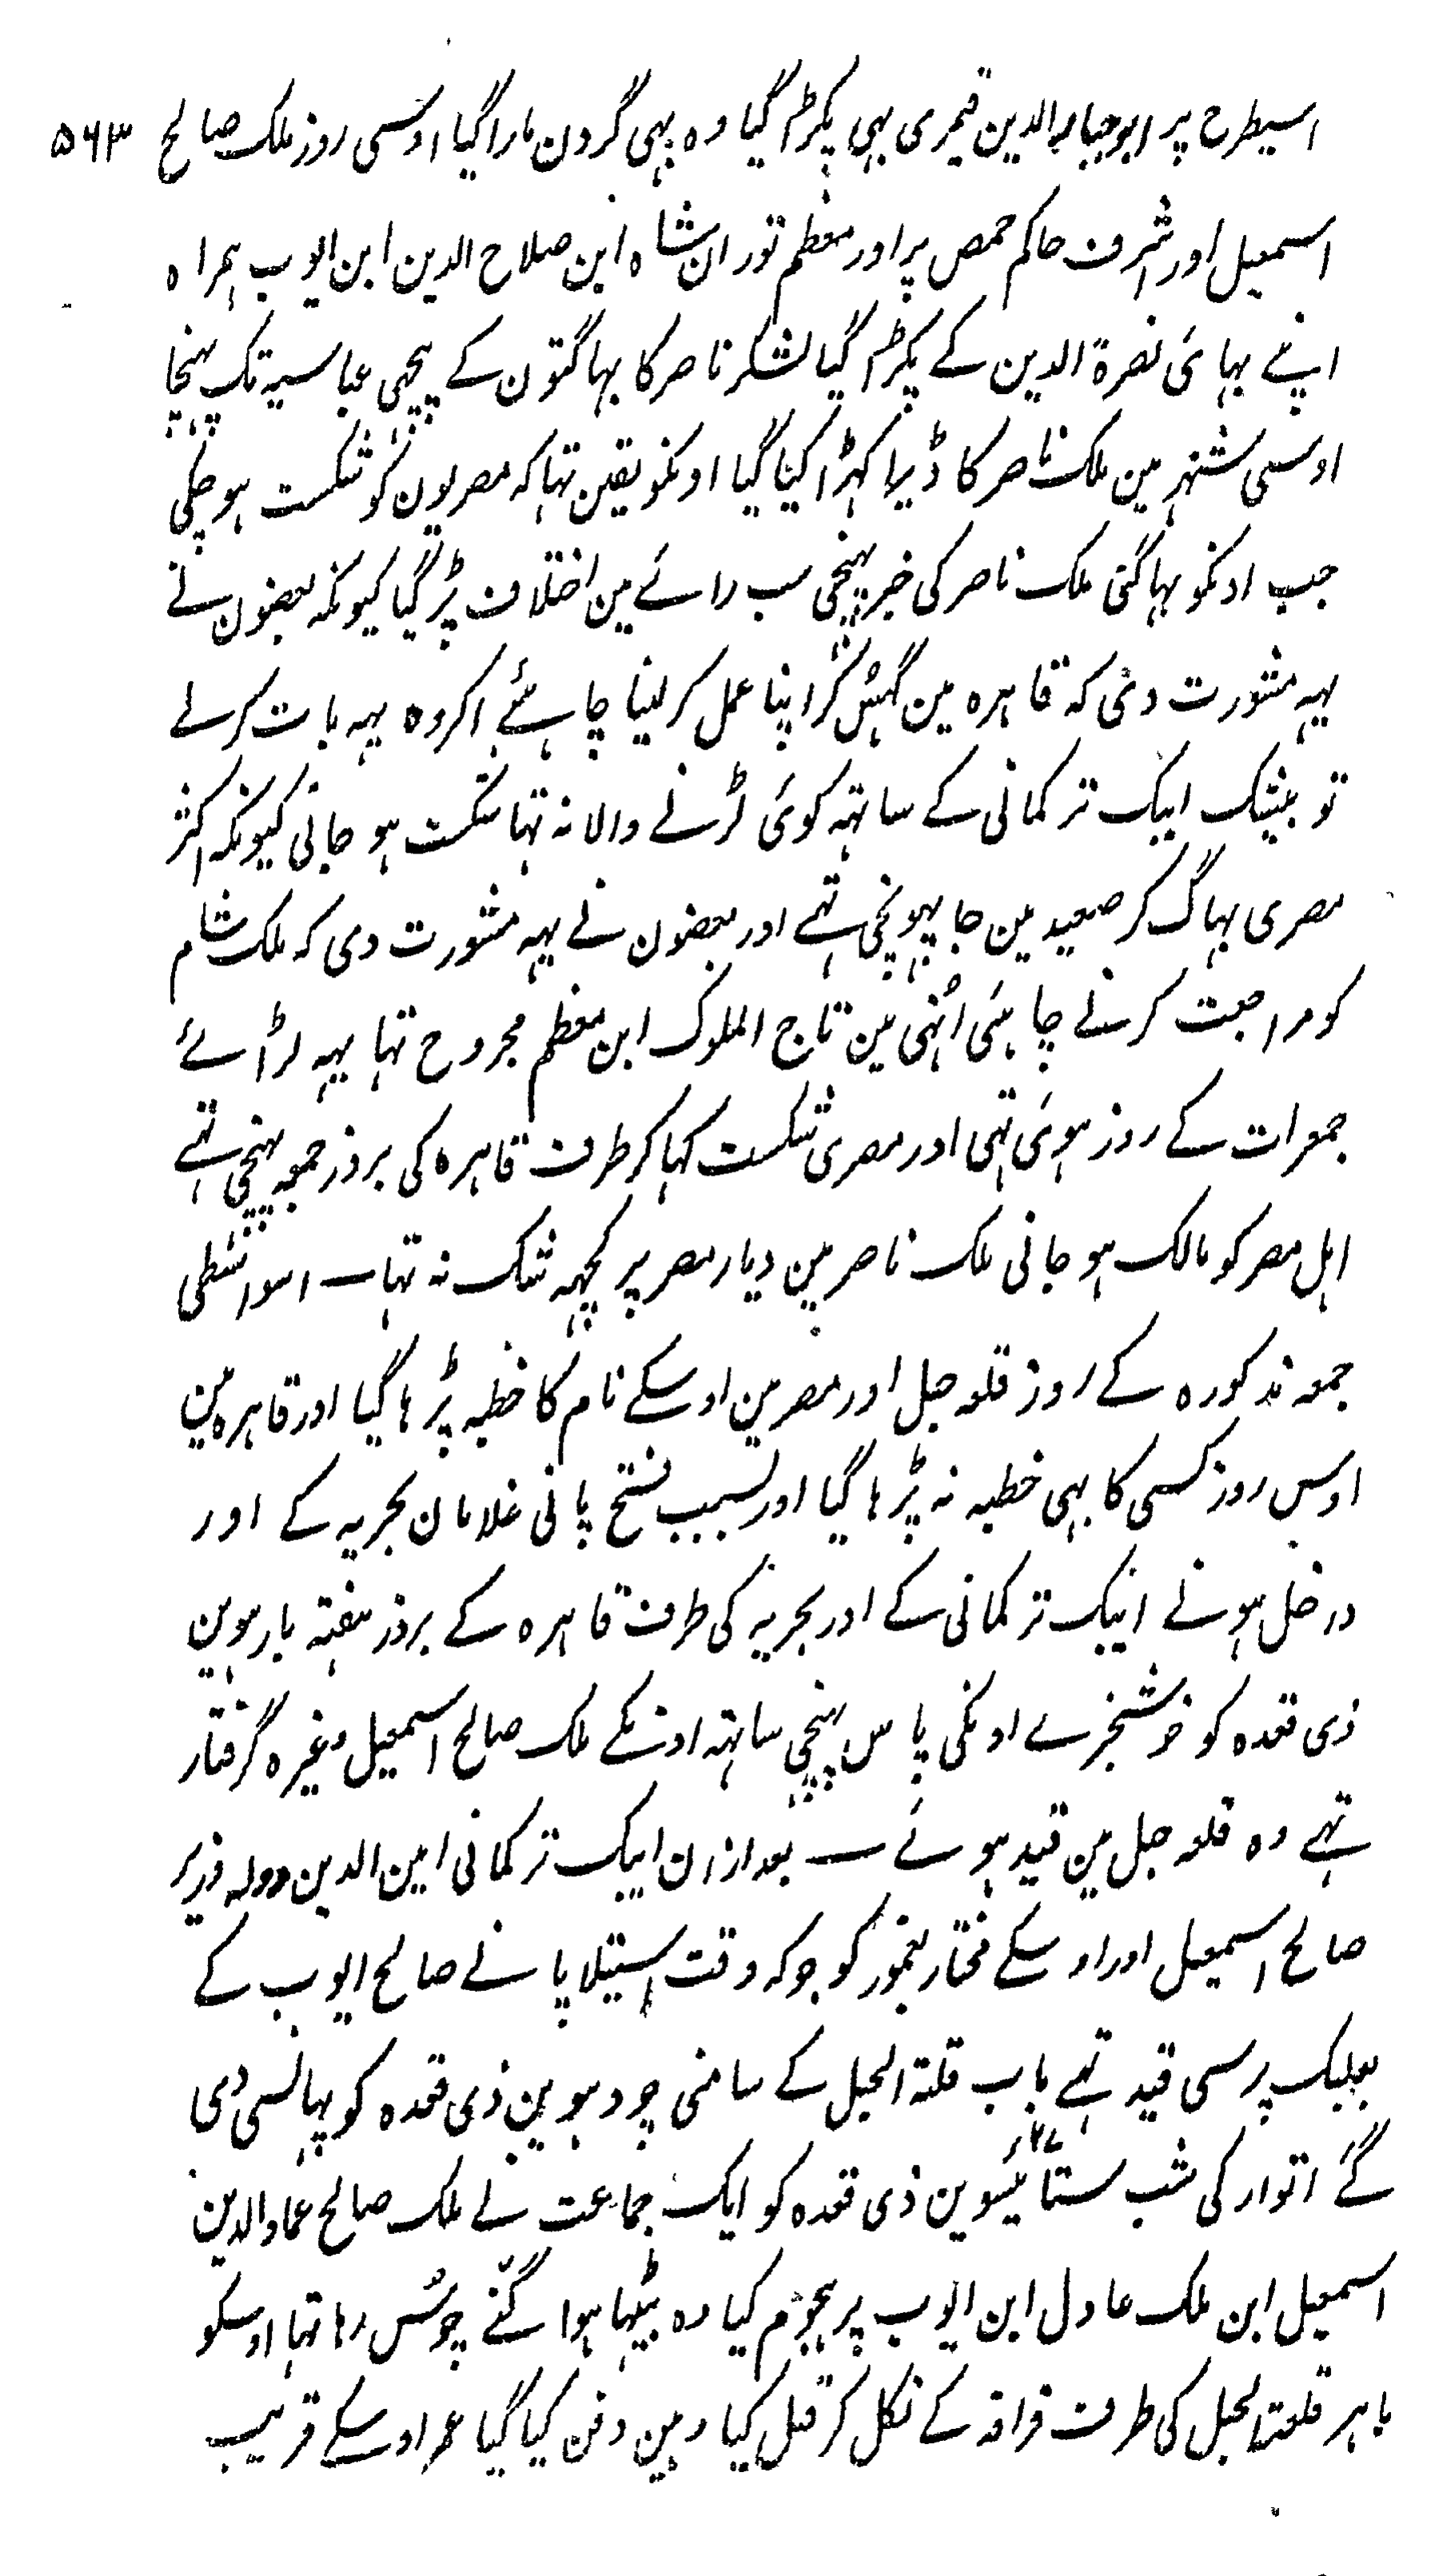 ۵۶۳
اسیطرح پر ابو ضیاء الدین قیمری بہی پکڑا گیا وہ بہی گردن مارا گیا اوسی روز ملک صالح
اسمعیل اور اشرف حاکم حمص پر اور معظم توران شاہ ابن صلاح الدین ابن ایوب ہمراہ
اپنے بہائی نصرۃ الدین کے پکڑا گیا لشکر ناصر کا بہاگتون کے پیچہی عباسیہ تک پہنچا
اوسی شہر مین ملک ناصر کا ڈیرا کہڑا کیا گیا اونکو یقین تہا کہ مصریون کو شکست ہو چکی
جب اونکو بہاگنی ملک ناصر کی خبر پہنچی سب رائے مین اختلاف پڑ گیا کیونکہ بعضون نے
یہہ مشورت دی کہ قاہرہ مین گہس کر اپنا عمل کر لینا چاہئے اگر وہ یہہ بات کرلے
تو بیشک ایبک ترکمانی کے ساتہہ کوئی لڑنے والا نہ تہا شکست ہو جاتی کیونکہ اکثر
مصری بہاگ کر صعید مین جا پہونچی تہے اور بعضون نے یہہ مشورت دی کہ ملک شام
کو مراجعت کرنے چاہئی انہی مین تاج الملوک ابن معظم مجروح تہا یہہ لڑائے
جمعرات کے روز ہوئی تہی اور مصری شکست کہا کر طرف قاہرہ کی بروز جمعہ پہنچی تہے
اہل مصر کو مالک ہو جانی ملک ناصر مین دیار مصر پر کچہہ شک نہ تہا ـــ اسواسطی
جمعہ مذکورہ کے روز قلعہ جبل اور مصر مین اوسکے نام کا خطبہ پڑہا گیا اور قاہرہ مین
اوس روز کسی کا بہی خطبہ نہ پڑہا گیا اور بسبب فتح پانی غلامان بحریہ کے اور
در خل ہونے ایبک ترکمانی کے اور بحریہ کی طرف قاہرہ کے بروز ہفتہ بارہوین
ذی قعدہ کو خوشخبرے اونکی پاس پہنچی ساتہہ اونکے ملک صالح اسمعیل وغیرہ گرفتار
تہے وہ قلعہ جبل مین قید ہوئے ـــ بعد ازان ایبک ترکمانی امین الدین دولہ وزیر
صالح اسمعیل اور اوسکے مختار یغمور کو جو کہ وقت استیلا پانے صالح ایوب کے
بعلبک پر سی قید تہے باب قلعۃ الجبل کے سامنی چودہوین ذی قعدہ کو پہانسی دی
گے اتوار کی شب ستائیسوین ۲۷ ذی قعدہ کو ایک جماعت نے ملک صالح عماد الدین
اسمعیل ابن ملک عادل ابن ایوب پر ہجوم کیا وہ بیٹہا ہوا گنّے چوس رہا تہا اوسکو
باہر قلعۃ الجبل کی طرف قرافہ کے نکل کر قتل کیا وہین دفن کیا گیا عمر اوسکے قریب